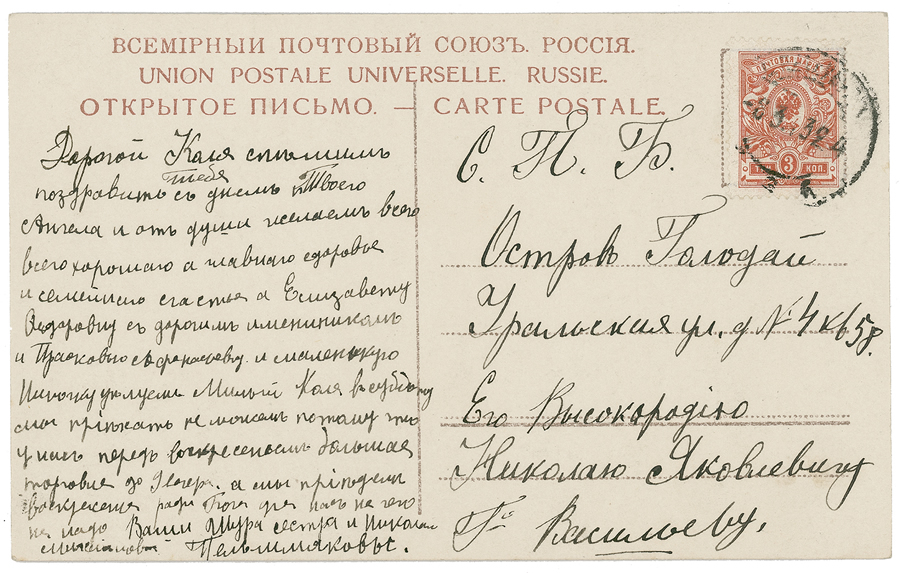 ВСЕМІРНЫЙ ПОЧТОВЫЙ СОЮЗЪ. РОССІЯ.
UNION POSTALE UNIVERSELLE. RUSSIE.
ОТКРЫТОЕ ПИСЬМО. — CARTE POSTALE.
ПОЧТОВАЯ МАРКА
3
КОП.
Дорогой Коля спѣшимъ
поздравить тебя съ днемъ Твоего
Ангела и отъ души желаемъ всего
всего хорошаго а главнаго здоровье
и семейнаго счастья а Елизавету
Федоровну съ дорогимъ имениникомъ
и Прасковью и маленькую
Ниночку цѣлуемъ Милый Коля въ субботу
мы пріѣхать не можемъ потому что
у насъ передъ воскресеньемъ большая
торговля до вечера. а мы пріѣдемъ
воскресенье ради Бога для насъ не чего
не надо Ваши Шура сестра и Николай
Пельшмяковы.
С. П. Б.
Островъ Голодай
Уральская ул. д № 4 кв 58.
Его Высокородію
Николаю Яковлевичу
Гну Васильеву.